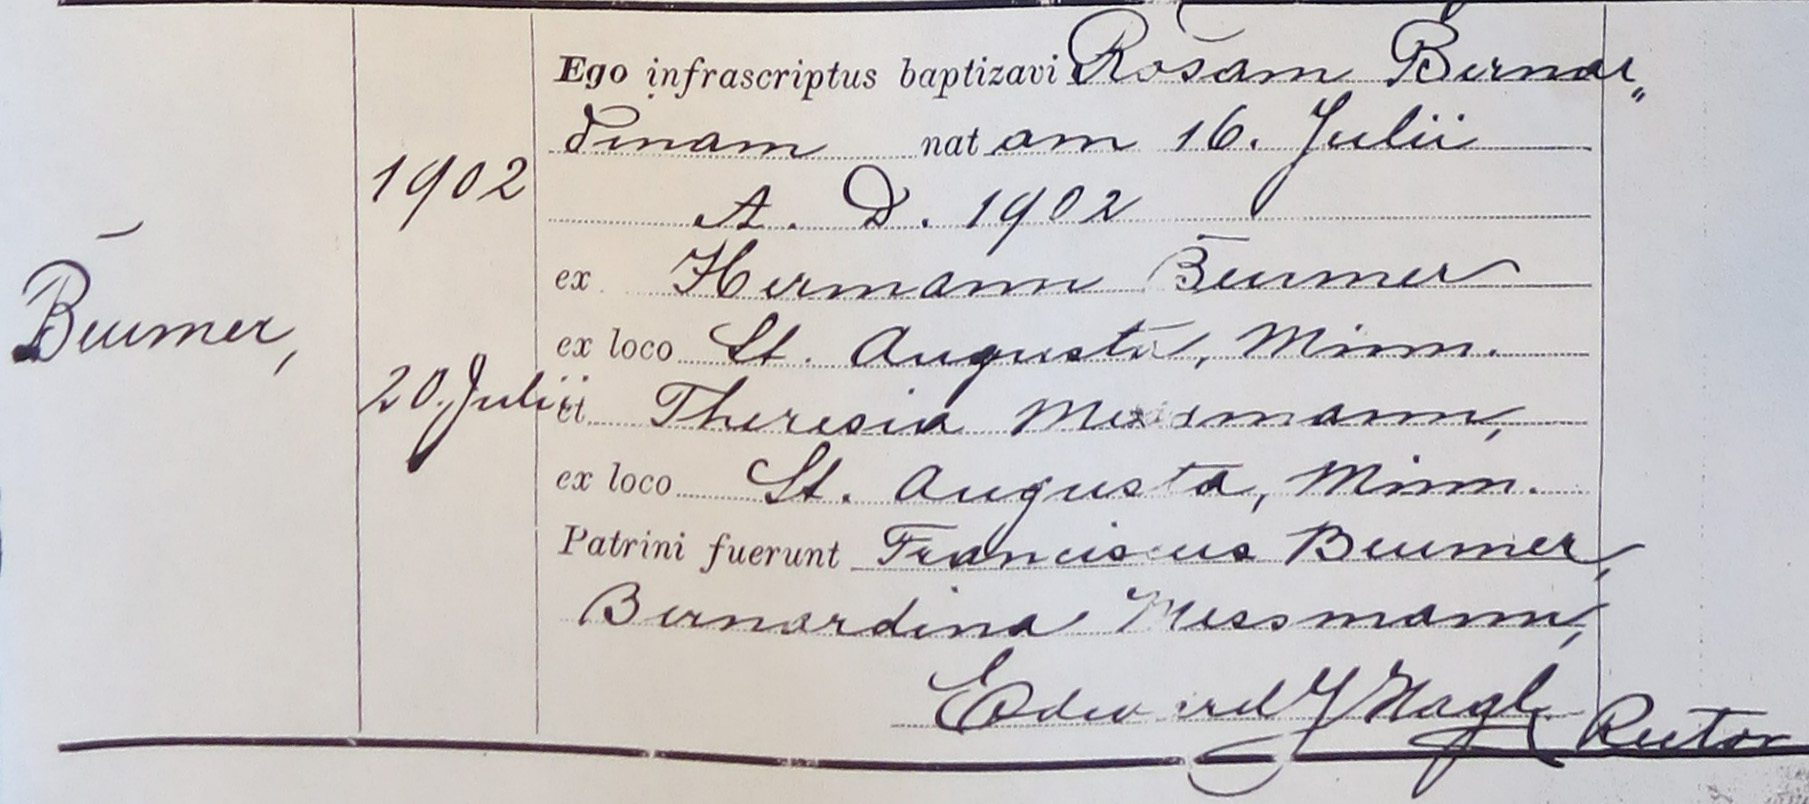 Ego infrascriptus baptizavi Rosam Bernar„
dinam natam 16. Julii
1902
A. D. 1902
ex Hermann Beumer
Beumer,
ex loco St. Augusta, Minn.
20. Julii
et Theresia Messmann,
ex loco St. Augusta, Minn.
Patrini fuerunt Franciscus Beumer,
Bernardina Messmann,
Edward J Nagl Rector